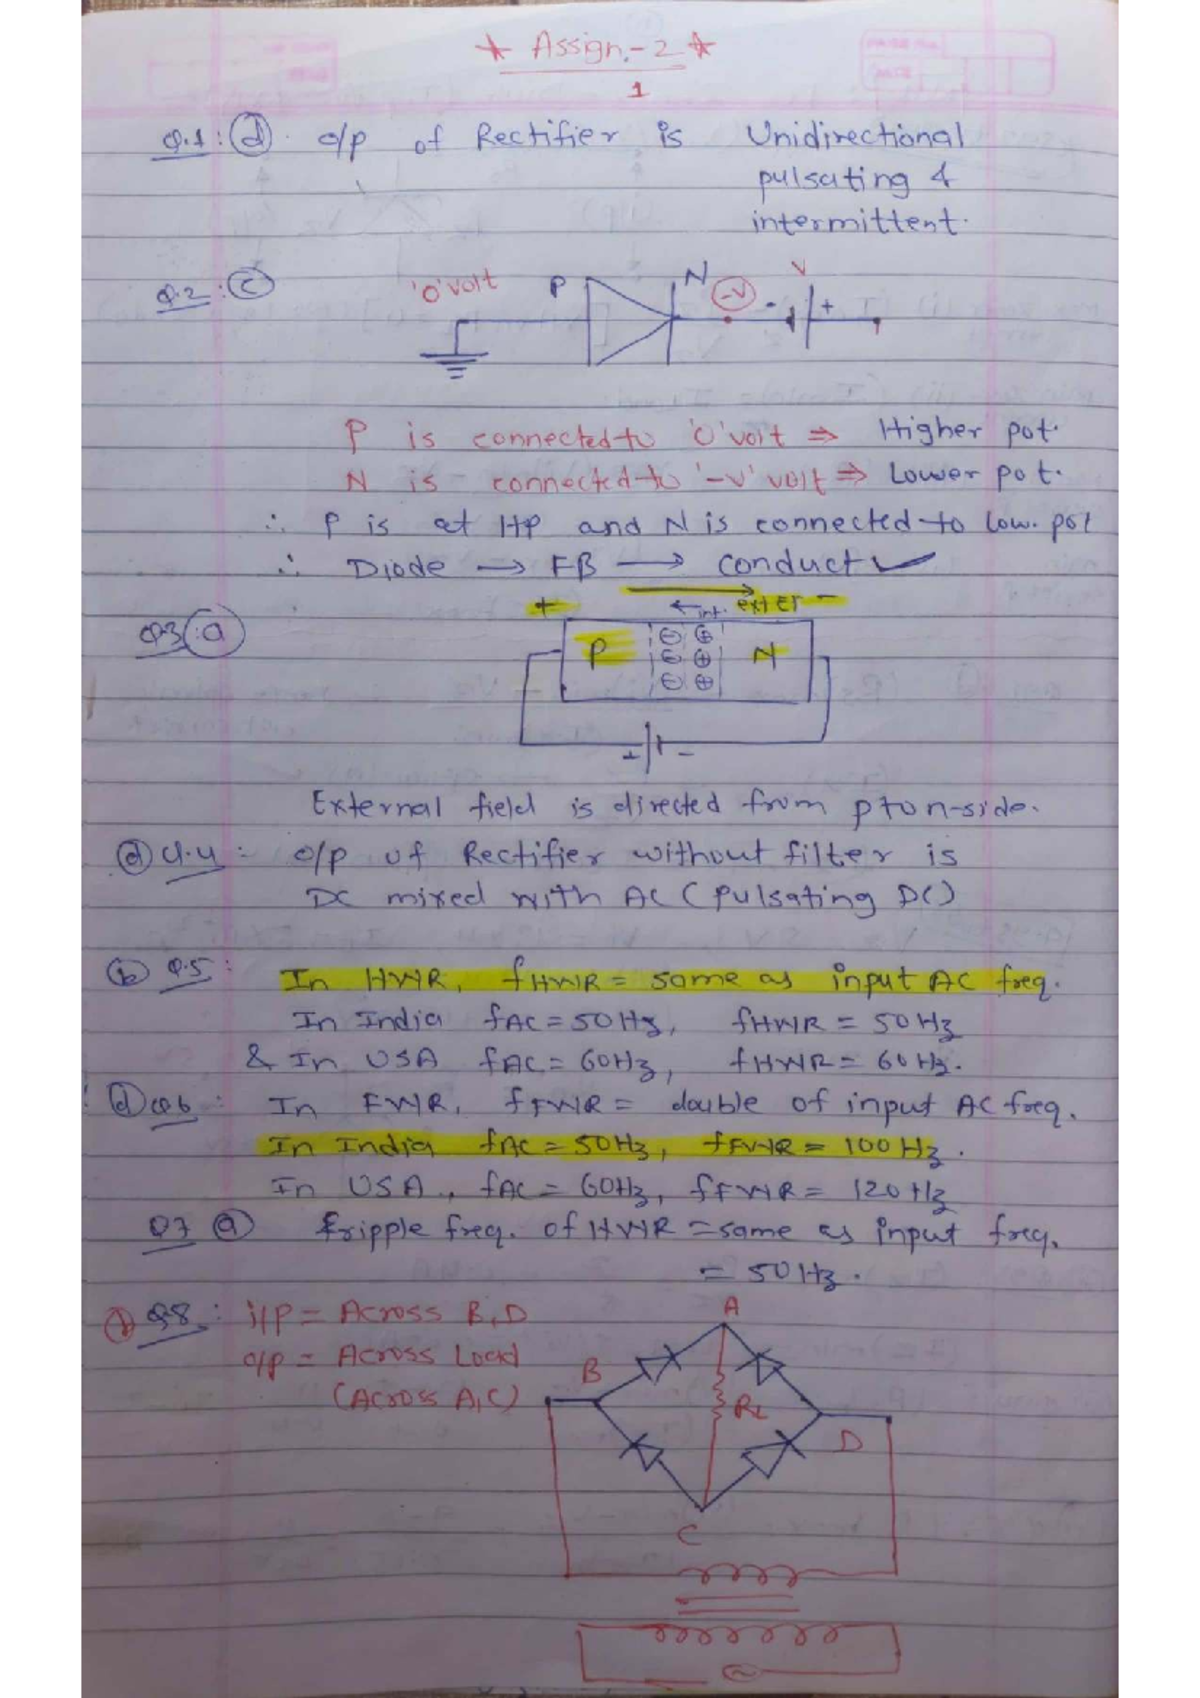 ★ Assign.-2 ★
1
Q.1: (d). o/p of Rectifier is Unidirectional
pulsating &
intermittent.
Q.2: (c)
'0' volt P N (-V) - V +
P is connected to '0' volt ⇒ Higher pot.
N is connected to '-v' volt ⇒ Lower pot.
∴ P is at HP and N is connected to low. pot
∴ Diode → FB → conduct ✓
Q3: (a)
+ ← int. exter -
P ⊖ ⊕ N
⊖ ⊕
⊖ ⊕
+ -
External field is directed from p to n-side.
(d) Q.4: o/p of Rectifier without filter is
DC mixed with AC (pulsating DC)
(b) Q.5: In HWR, fHWR = same as input AC freq.
In India fAC = 50Hz, fHWR = 50Hz
& In USA fAC = 60Hz, fHWR = 60Hz.
(d) Q6: In FWR, fFWR = double of input AC freq.
In India fAC = 50Hz, fFWR = 100Hz.
In USA, fAC = 60Hz, fFWR = 120Hz
Q7 (a) fripple freq. of HWR = same as input freq.
= 50Hz.
Q8: i/p = Across B,D
o/p = Across Load
(Across A,C)
A
B
RL
D
C